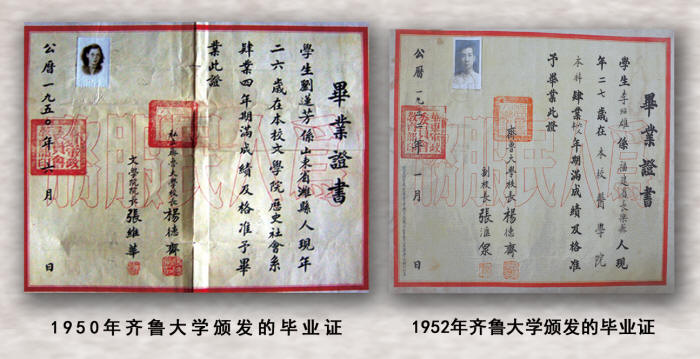 畢業證書
學生劉芳係山東省濰縣人現年
二六歲在本校文學院歷史社會系
肄業四年期滿成績及格准予畢
業此證
私立齊魯大學校長楊德齋
文學院院長張維華
公曆一九五〇年六月 日
為人民服務
畢業證書
學生李雄係福建省長樂縣人現
年二七歲在本校醫學院
本科肄業年期滿成績及格准
予畢業此證
齊魯大學校長楊德齋
副校長張滙泉
公曆一九五二年一月 日
為人民服務
1950年齐鲁大学颁发的毕业证
1952年齐鲁大学颁发的毕业证